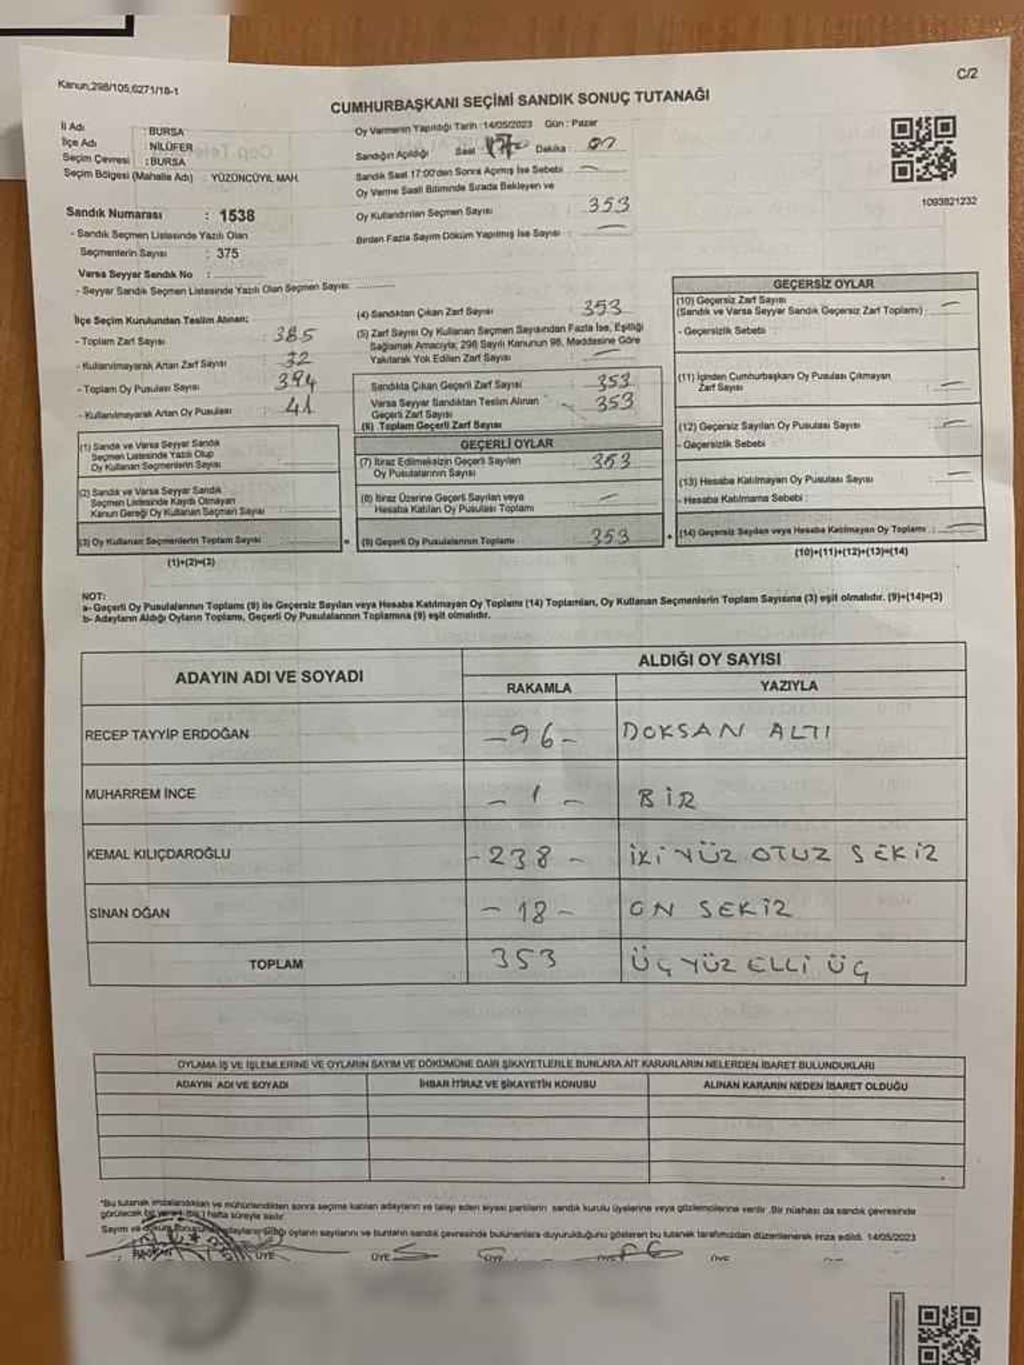 Kanun;298/105,6271/18-1
C/2
CUMHURBAŞKANI SEÇİMİ SANDIK SONUÇ TUTANAĞI
İl Adı : BURSA
İlçe Adı : NİLÜFER
Seçim Çevresi : BURSA
Seçim Bölgesi (Mahalle Adı) : YÜZÜNCÜYIL MAH.
Sandık Numarası : 1538
- Sandık Seçmen Listesinde Yazılı Olan
Seçmenlerin Sayısı : 375
Varsa Seyyar Sandık No :
- Seyyar Sandık Seçmen Listesinde Yazılı Olan Seçmen Sayısı:
Oy Vermenin Yapıldığı Tarih :14/05/2023 Gün : Pazar
Sandığın Açıldığı Saat : 17 Dakika :
Sandık Saat 17:00'den Sonra Açılmış İse Sebebi : —
Oy Verme Saati Bitiminde Sırada Bekleyen ve
Oy Kullandırılan Seçmen Sayısı : 353
Birden Fazla Sayım Döküm Yapılmış İse Sayısı : —
1093821232
İlçe Seçim Kurulundan Teslim Alınan;
- Toplam Zarf Sayısı : 385
- Kullanılmayarak Artan Zarf Sayısı : 32
- Toplam Oy Pusulası Sayısı : 394
- Kullanılmayarak Artan Oy Pusulası : 41
(1) Sandık ve Varsa Seyyar Sandık
Seçmen Listesinde Yazılı Olup
Oy Kullanan Seçmenlerin Sayısı :
(2) Sandık ve Varsa Seyyar Sandık
Seçmen Listesinde Kaydı Olmayan
Kanun Gereği Oy Kullanan Seçmen Sayısı :
(3) Oy Kullanan Seçmenlerin Toplam Sayısı :
(1)+(2)=(3)
(4) Sandıktan Çıkan Zarf Sayısı : 353
(5) Zarf Sayısı Oy Kullanan Seçmen Sayısından Fazla İse, Eşitliği
Sağlamak Amacıyla; 298 Sayılı Kanunun 98. Maddesine Göre
Yakılarak Yok Edilen Zarf Sayısı : —
Sandıkta Çıkan Geçerli Zarf Sayısı : 353
Varsa Seyyar Sandıktan Teslim Alınan
Geçerli Zarf Sayısı
(6) Toplam Geçerli Zarf Sayısı : 353
GEÇERLİ OYLAR
(7) İtiraz Edilmeksizin Geçerli Sayılan
Oy Pusulalarının Sayısı : 353
(8) İtiraz Üzerine Geçerli Sayılan veya
Hesaba Katılan Oy Pusulası Toplamı : —
= (9) Geçerli Oy Pusulalarının Toplamı : 353
GEÇERSİZ OYLAR
(10) Geçersiz Zarf Sayısı
(Sandık ve Varsa Seyyar Sandık Geçersiz Zarf Toplamı) : —
- Geçersizlik Sebebi :
(11) İçinden Cumhurbaşkanı Oy Pusulası Çıkmayan
Zarf Sayısı : —
(12) Geçersiz Sayılan Oy Pusulası Sayısı : —
- Geçersizlik Sebebi :
(13) Hesaba Katılmayan Oy Pusulası Sayısı : —
- Hesaba Katılmama Sebebi :
+ (14) Geçersiz Sayılan veya Hesaba Katılmayan Oy Toplamı : —
(10)+(11)+(12)+(13)=(14)
NOT:
a- Geçerli Oy Pusulalarının Toplamı (9) ile Geçersiz Sayılan veya Hesaba Katılmayan Oy Toplamı (14) Toplamları, Oy Kullanan Seçmenlerin Toplam Sayısına (3) eşit olmalıdır. (9)+(14)=(3)
b- Adayların Aldığı Oyların Toplamı, Geçerli Oy Pusulalarının Toplamına (9) eşit olmalıdır.
ADAYIN ADI VE SOYADI ALDIĞI OY SAYISI
RAKAMLA YAZIYLA
RECEP TAYYİP ERDOĞAN -96- DOKSAN ALTI
MUHARREM İNCE - 1 - BİR
KEMAL KILIÇDAROĞLU -238- İKİ YÜZ OTUZ SEKİZ
SİNAN OĞAN -18- ON SEKİZ
TOPLAM 353 ÜÇ YÜZ ELLİ ÜÇ
OYLAMA İŞ VE İŞLEMLERİNE VE OYLARIN SAYIM VE DÖKÜMÜNE DAİR ŞİKAYETLERLE BUNLARA AİT KARARLARIN NELERDEN İBARET BULUNDUKLARI
ADAYIN ADI VE SOYADI İHBAR İTİRAZ VE ŞİKAYETİN KONUSU ALINAN KARARIN NEDEN İBARET OLDUĞU
*Bu tutanak imzalandıktan ve mühürlendikten sonra seçime katılan adayların ve talep eden siyasi partilerin sandık kurulu üyelerine veya gözlemcilerine verilir. Bir nüshası da sandık çevresinde
görülecek bir yere 1 (bir) hafta süreyle asılır.
Sayım ve döküm sonucunda adayların aldığı oyların sayılarını ve bunların sandık çevresinde bulunanlara duyurulduğunu gösteren bu tutanak tarafımızdan düzenlenerek imza edildi. 14/05/2023
BAŞKAN ÜYE ÜYE ÜYE ÜYE ÜYE